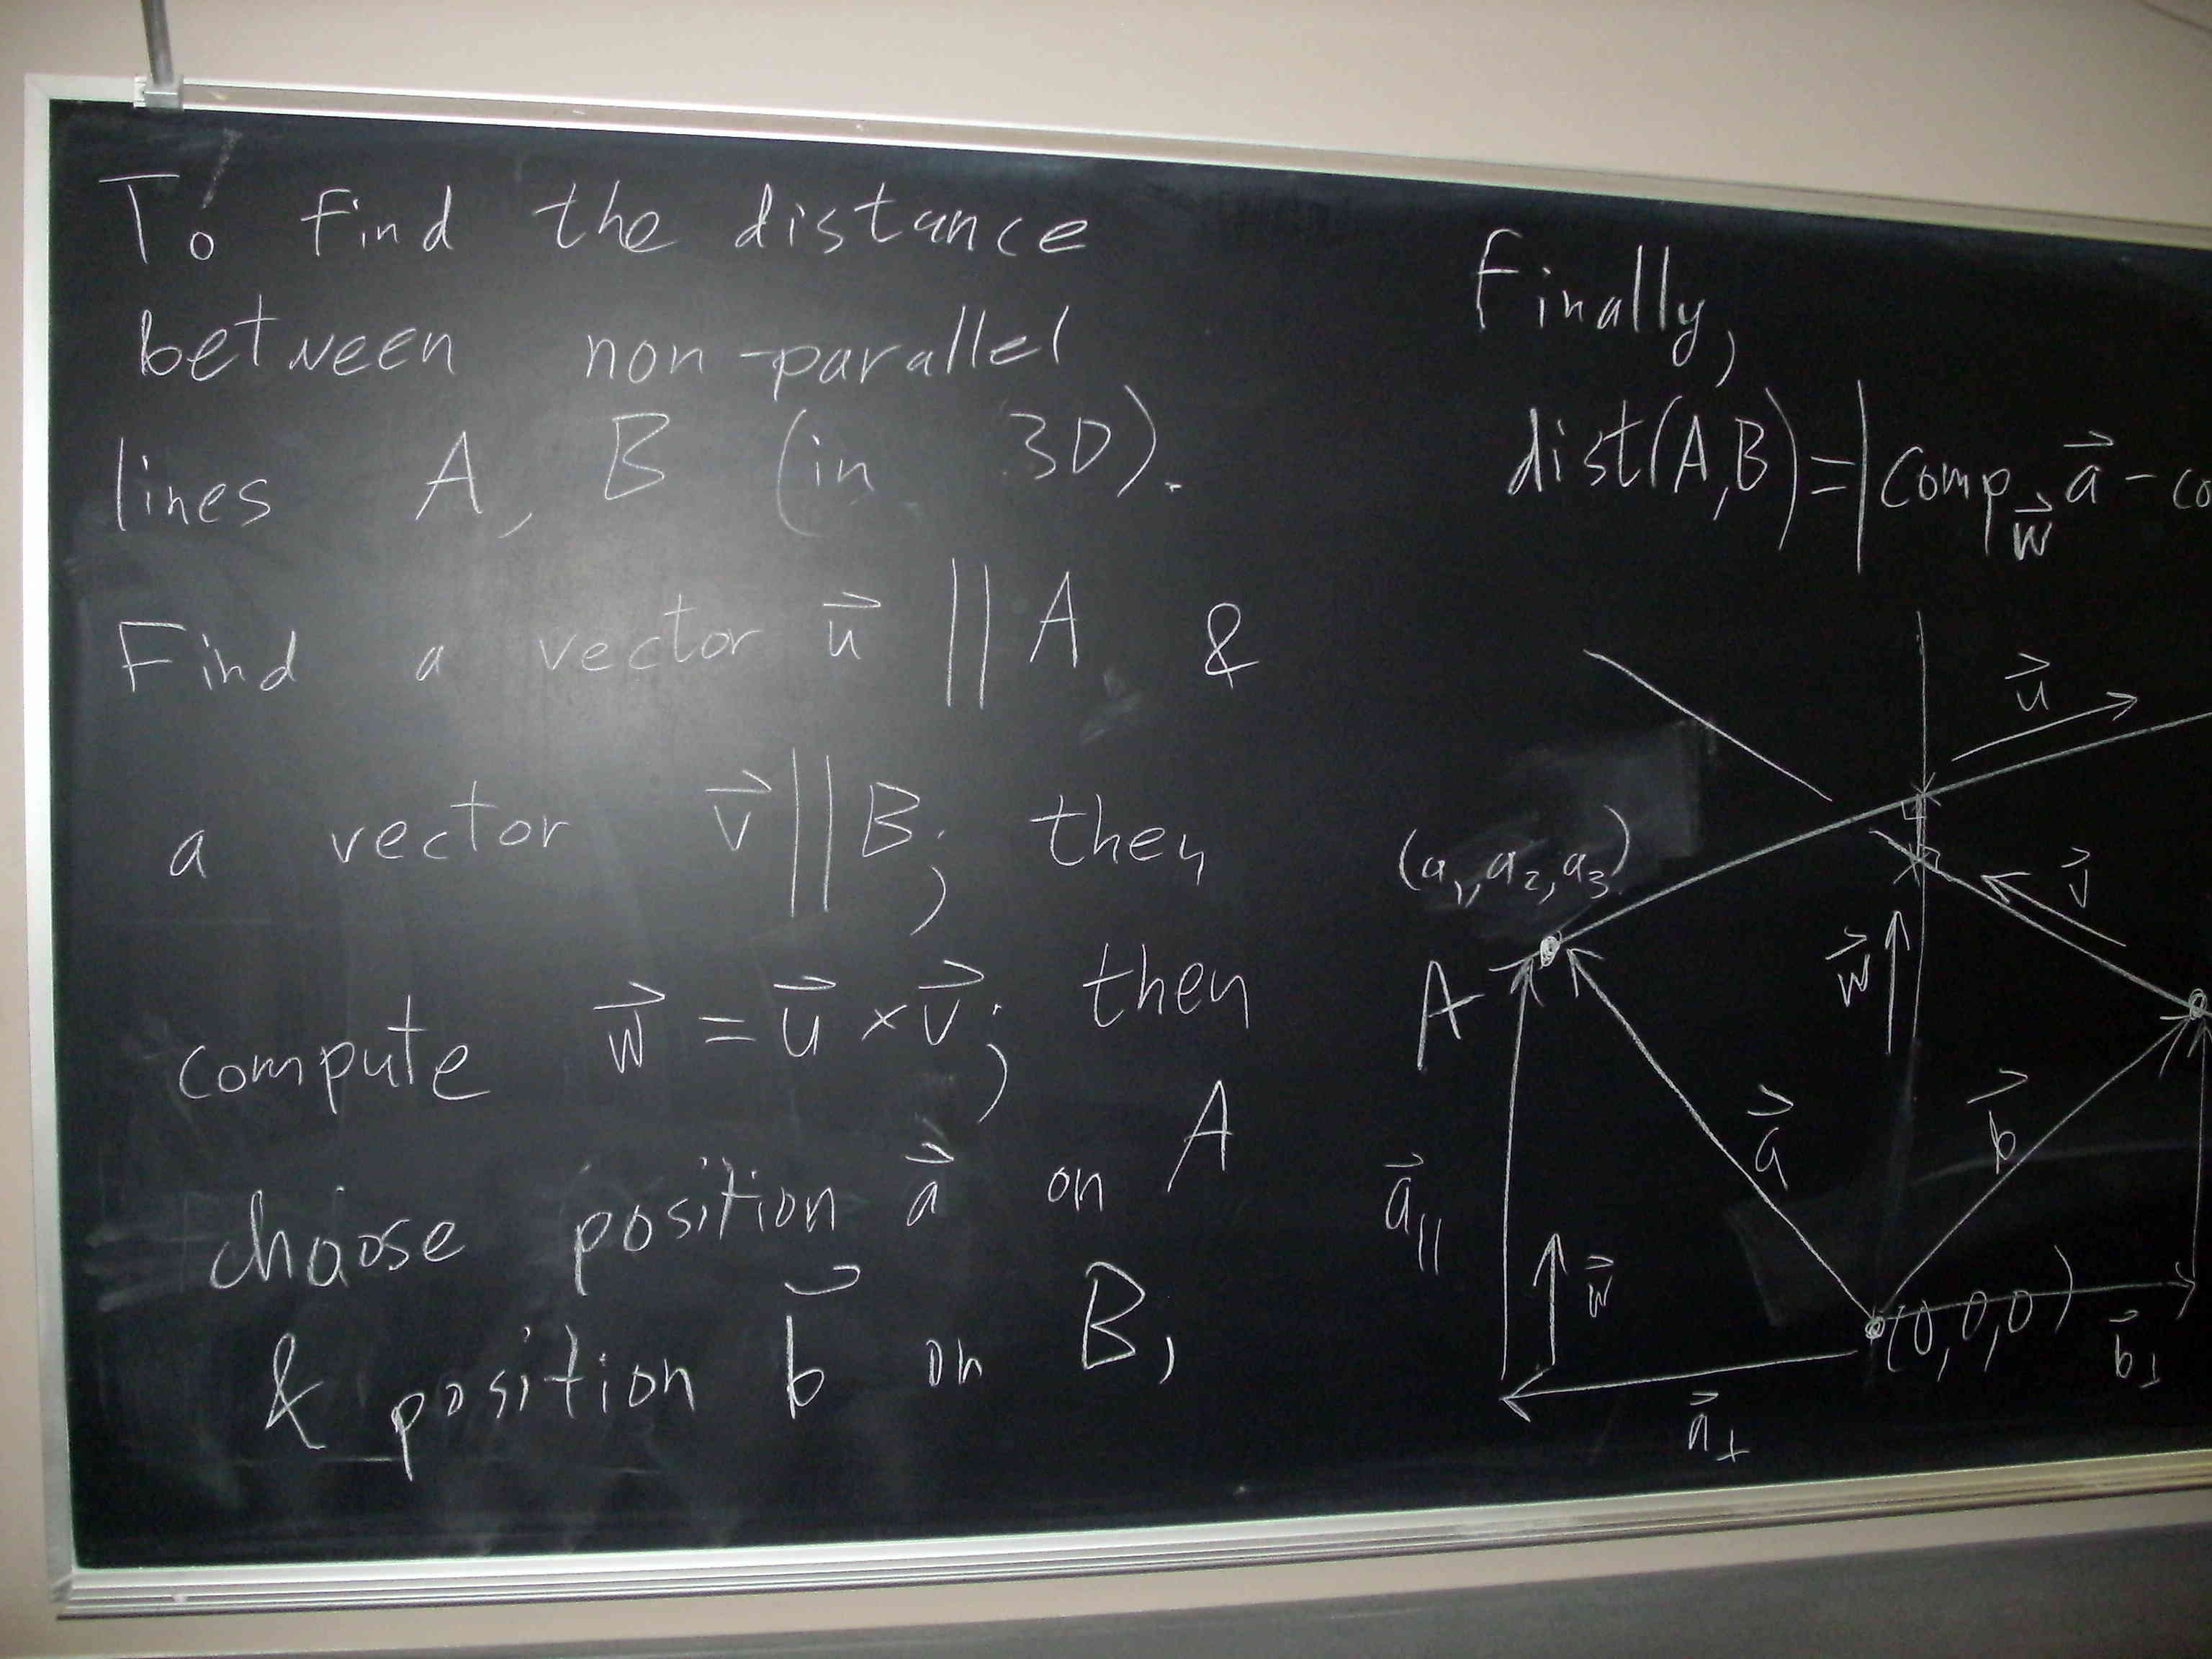 To find the distance
between non-parallel
lines A, B (in 3D).
Find a vector u⃗ || A &
a vector v⃗ || B; then
compute w⃗ = u⃗ × v⃗; then
choose position a⃗ on A
& position b⃗ on B,
Finally,
dist(A,B)=|comp_w⃗ a⃗ - co
u⃗
(a₁,a₂,a₃)
v⃗
A
w⃗
a⃗
b⃗
a⃗||
w⃗
(0,0,0)
b⃗⊥
a⃗⊥